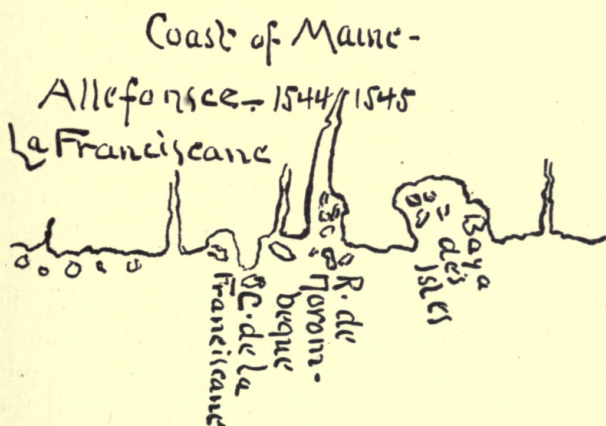 Coast of Maine-
Allefonsce- 1544/1545
La Franciscane
C. de la
Franciscane
R. de
Noram-
beque
Baya
des
Isles